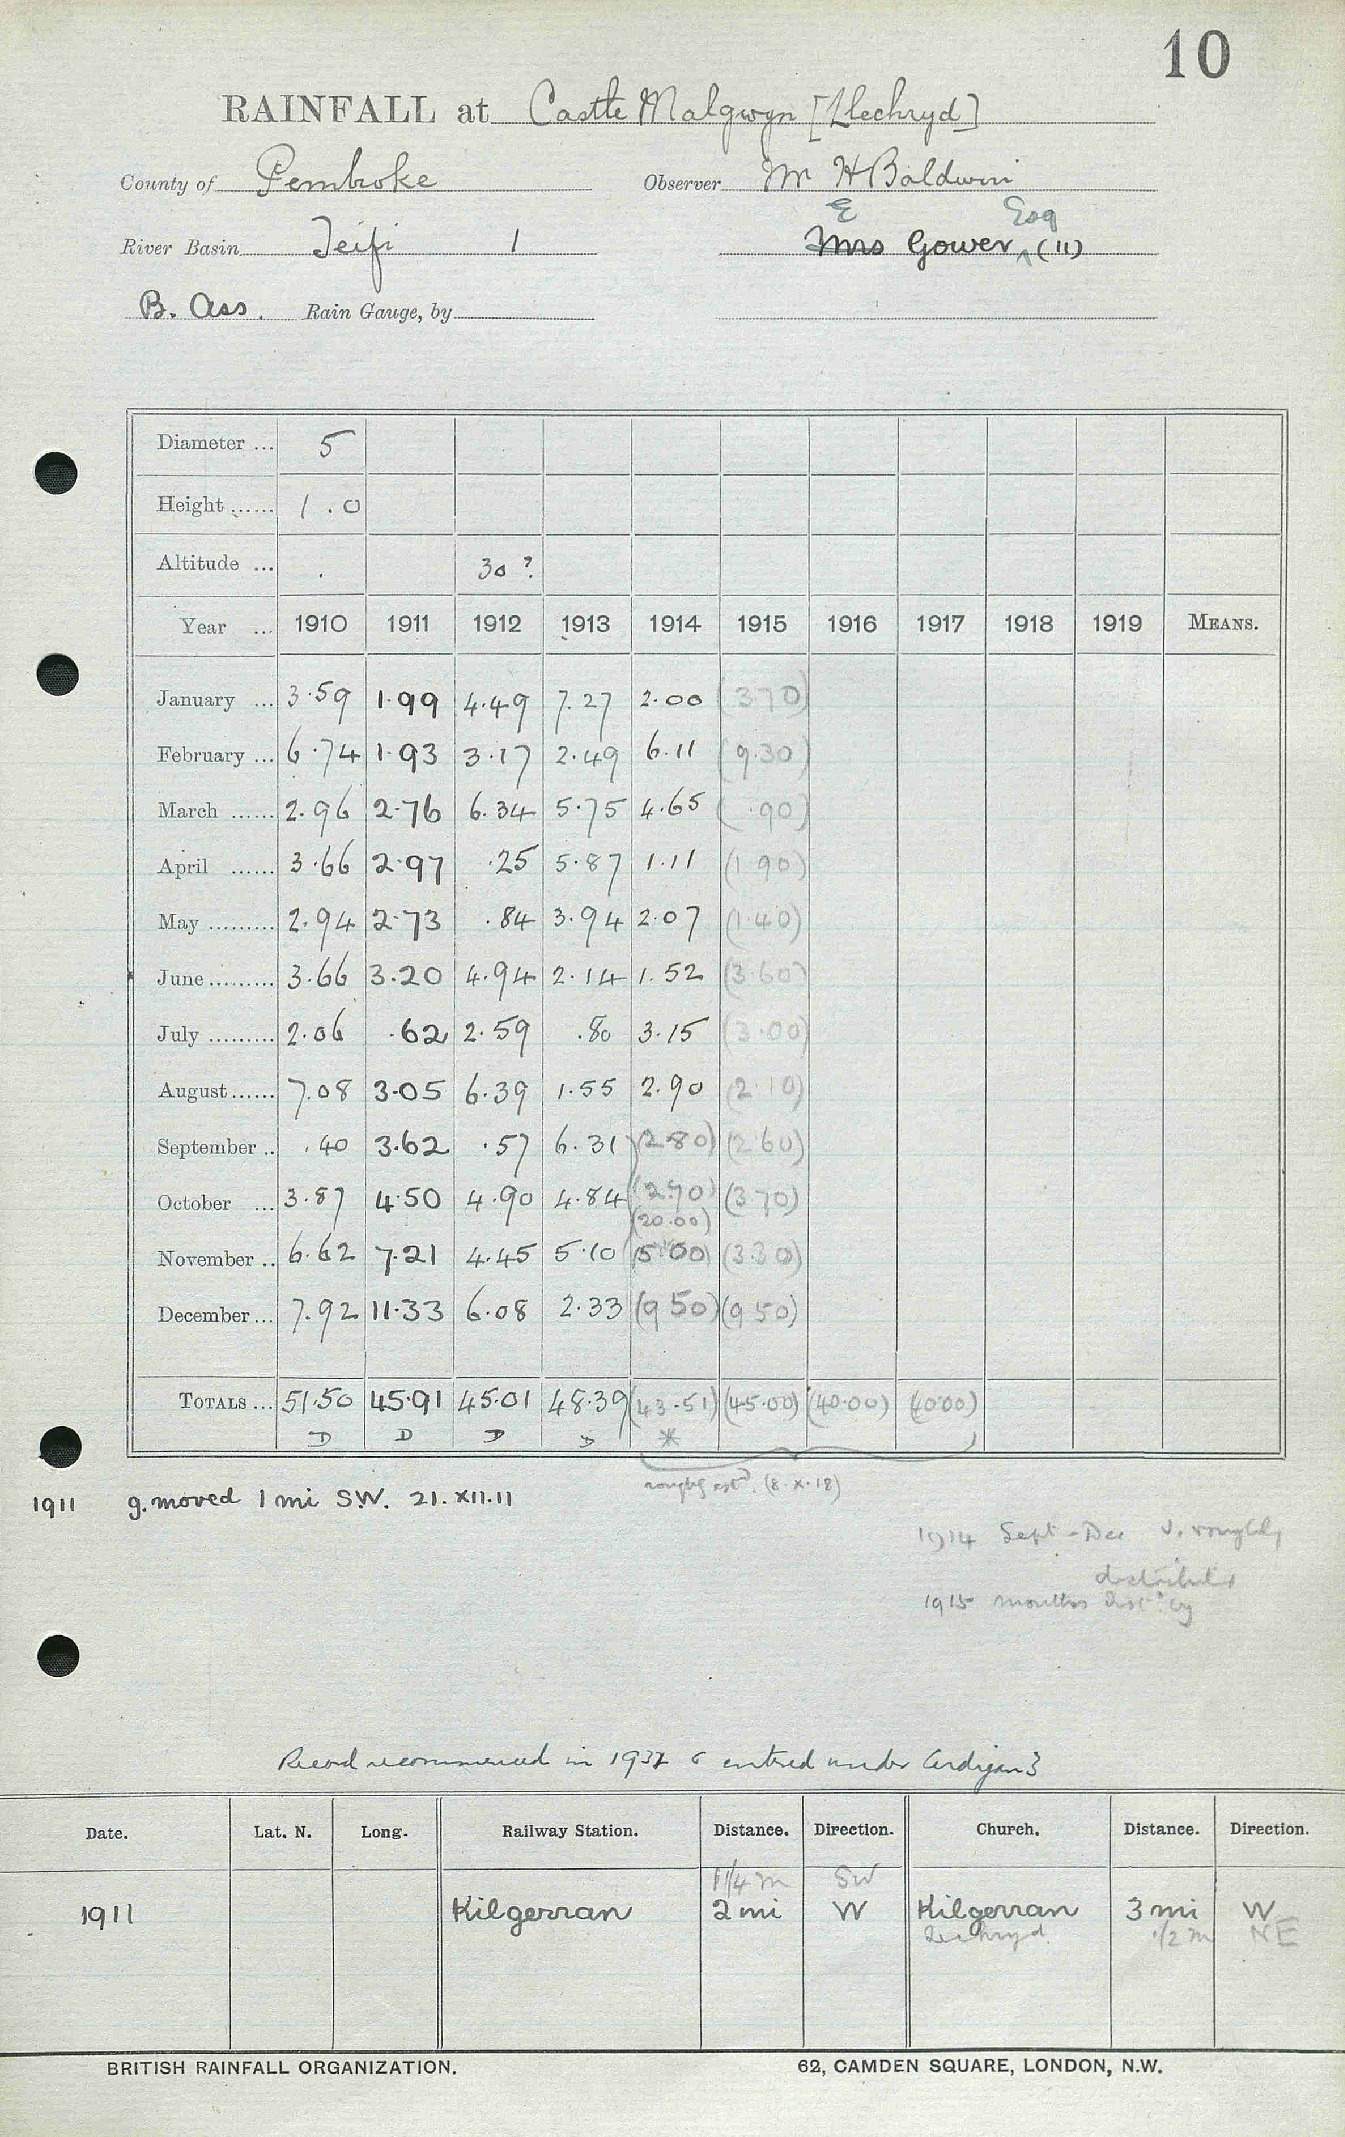 10
RAINFALL at Castle Malgwyn [Llechryd]
County of Pembroke Observer Mr H Baldwin
E Esq
River Basin Teifi 1 Mrs Gower ^ (11)
B. Ass. Rain Gauge, by
Diameter ... 5
Height ...... 1.0
Altitude ... . 30 ?
Year ... 1910 1911 1912 1913 1914 1915 1916 1917 1918 1919 MEANS.
January ... 3.59 1.99 4.49 7.27 2.00 (3.70)
February ... 6.74 1.93 3.17 2.49 6.11 (9.30)
March ...... 2.96 2.76 6.34 5.75 4.65 ( .90)
April ...... 3.66 2.97 .25 5.87 1.11 (1.90)
May ......... 2.94 2.73 .84 3.94 2.07 (1.40)
June ......... 3.66 3.20 4.94 2.14 1.52 (3.60)
July ......... 2.06 .62 2.59 .80 3.15 (3.00)
August ...... 7.08 3.05 6.39 1.55 2.90 (2.10)
September .. .40 3.62 .57 6.31 (2.80) (2.60)
October ... 3.87 4.50 4.90 4.84 (2.70) (3.70)
(20.00)
November .. 6.62 7.21 4.45 5.10 (5.00) (3.30)
December ... 7.92 11.33 6.08 2.33 (9.50) (9.50)
TOTALS ... 51.50 45.91 45.01 48.39 (43.51) (45.00) (40.00) (40.00)
D D D D *
roughly estd. (8.X.18)
1911 g. moved 1 mi S.W. 21.XII.11
1914 Sept - Dec v. roughly
distributed
1915 months distd. by
Record recommenced in 1937 & entered under Cardigan 3
Date. Lat. N. Long. Railway Station. Distance. Direction. Church. Distance. Direction.
1 1/4 m SW
1911 Kilgerran 2 mi W Kilgerran 3 mi W
Llechryd 1/2 m NE
BRITISH RAINFALL ORGANIZATION. 62, CAMDEN SQUARE, LONDON, N.W.